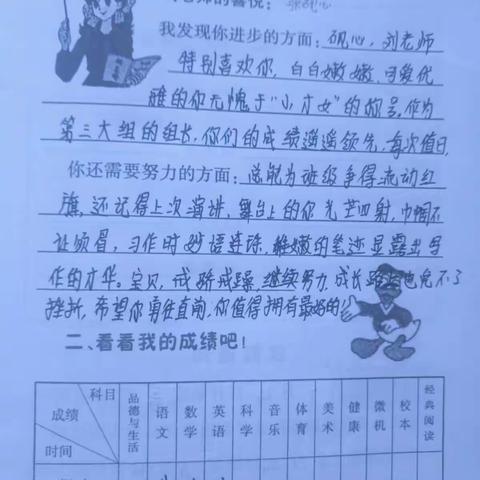 老师的喜悦：
我发现你进步的方面：砚心，刘老师
特别喜欢你，白白嫩嫩，可爱优
雅的你无愧于“小才女”的称号，作为
第三大组的组长，你们的成绩遥遥领先，每次值日，
你还需要努力的方面：总能为班级争得流动红
旗，还记得上次演讲，舞台上的你光芒四射，巾帼不
让须眉，习作时妙语连珠，稚嫩的笔迹显露出写
作的才华。宝贝，戒骄戒躁，继续努力，成长路上也免不了
挫折，希望你勇往直前，你值得拥有最好的！
二、看看我的成绩吧！
科目 成绩 时间 品德与生活 语文 数学 英语 科学 音乐 体育 美术 健康 微机 校本 经典阅读